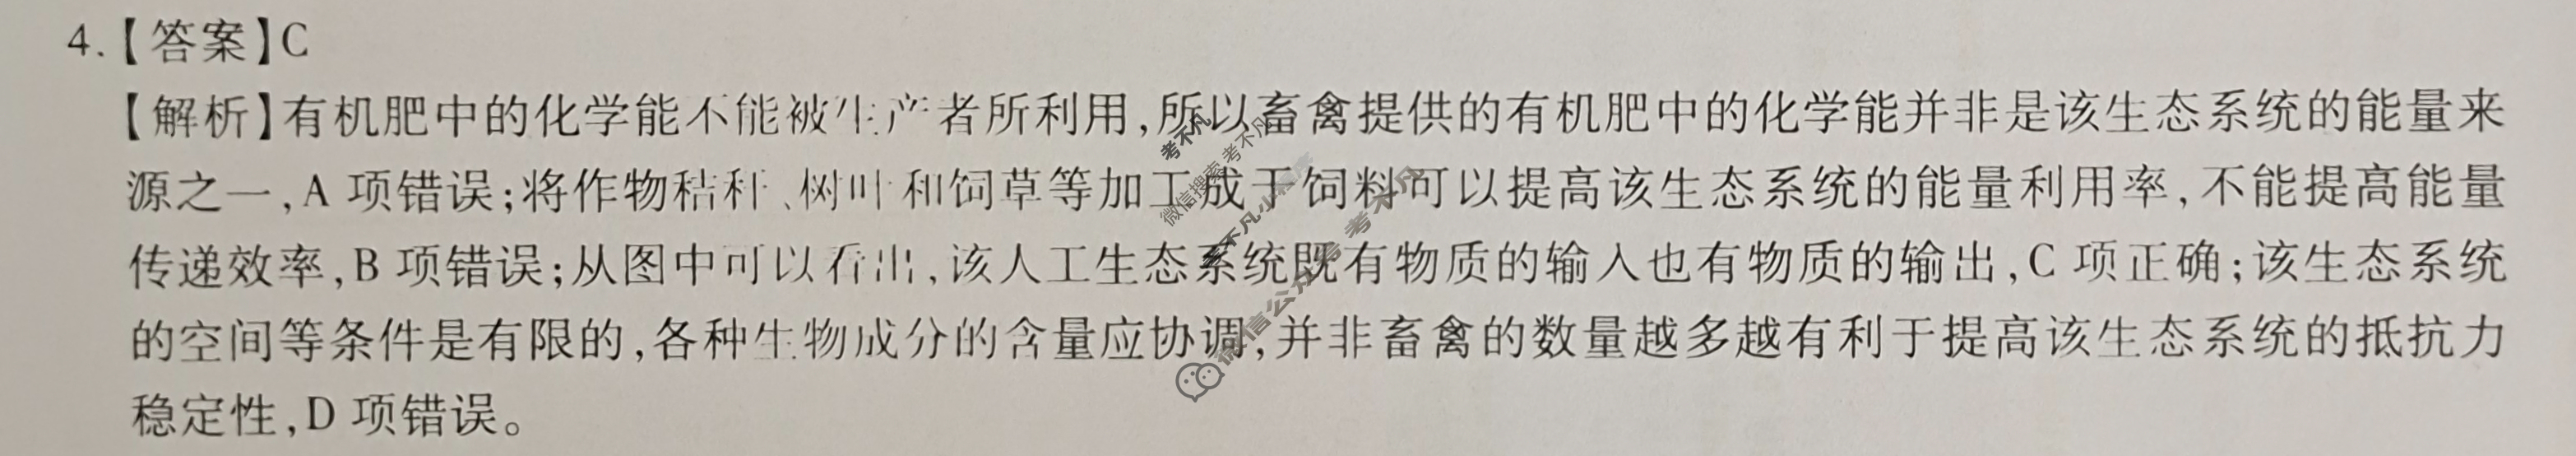 4.【答案】C
【解析】有机肥中的化学能不能被生产者所利用,所以畜禽提供的有机肥中的化学能并非是该生态系统的能量来
源之一,A 项错误;将作物秸秆、树叶和饲草等加工成干饲料可以提高该生态系统的能量利用率,不能提高能量
传递效率,B 项错误;从图中可以看出,该人工生态系统既有物质的输入也有物质的输出,C 项正确;该生态系统
的空间等条件是有限的,各种生物成分的含量应协调,并非畜禽的数量越多越有利于提高该生态系统的抵抗力
稳定性,D 项错误。
考不凡
微信搜索 考不凡
微信公众号 考不凡